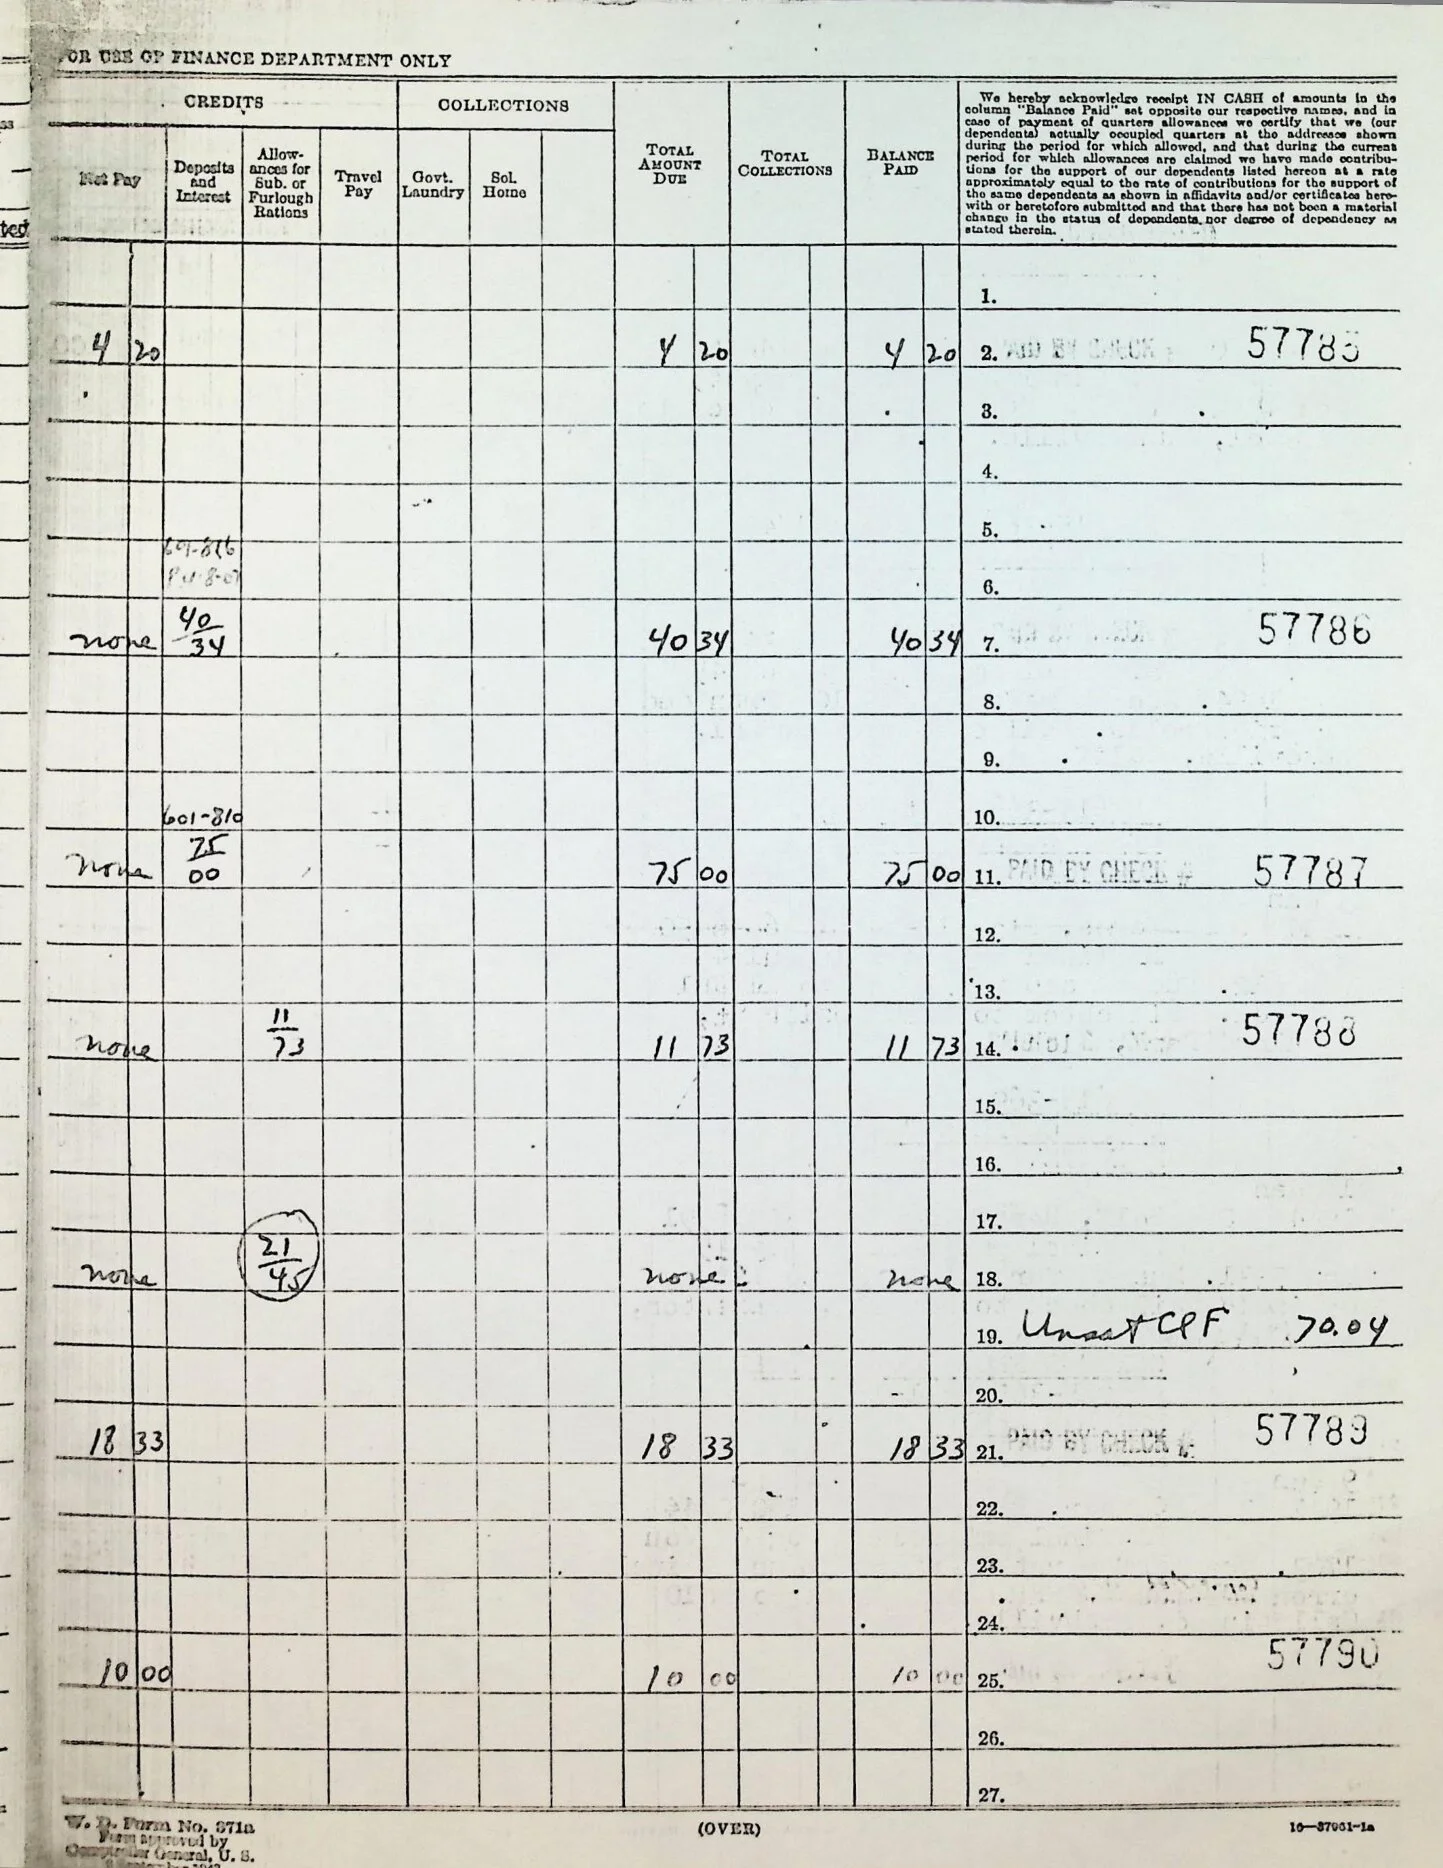 FOR USE OF FINANCE DEPARTMENT ONLY
CREDITS
COLLECTIONS
Net Pay
Deposits and Interest
Allow-ances for Sub. or Furlough Rations
Travel Pay
Govt. Laundry
Sol. Home
TOTAL AMOUNT DUE
TOTAL COLLECTIONS
BALANCE PAID
We hereby acknowledge receipt IN CASH of amounts in the
column "Balance Paid" set opposite our respective names, and in
case of payment of quarters allowances we certify that we (our
dependents) actually occupied quarters at the addresses shown
during the period for which allowed, and that during the current
period for which allowances are claimed we have made contribu-
tions for the support of our dependents listed hereon at a rate
approximately equal to the rate of contributions for the support of
the same dependents as shown in affidavits and/or certificates here-
with or heretofore submitted and that there has not been a material
change in the status of dependents, nor degree of dependency as
stated therein.
1.
4 20 4 20 4 20 2. PAID BY CHECK 57785
3.
4.
5.
6.
none 40/34 40 34 40 34 7. 57786
8.
9.
601-810 10.
none 75/00 75 00 75 00 11. PAID BY CHECK # 57787
12.
13.
none 11/73 11 73 11 73 14. 57788
15.
16.
17.
none 21/45 none none 18.
19. Unsat CPF 70.04
20.
18 33 18 33 18 33 21. PAID BY CHECK # 57789
22.
23.
24.
10 00 10 00 10 00 25. 57790
26.
27.
W. D. Form No. 371a
Form approved by
Comptroller General, U. S.
(OVER)
16—37961-1a